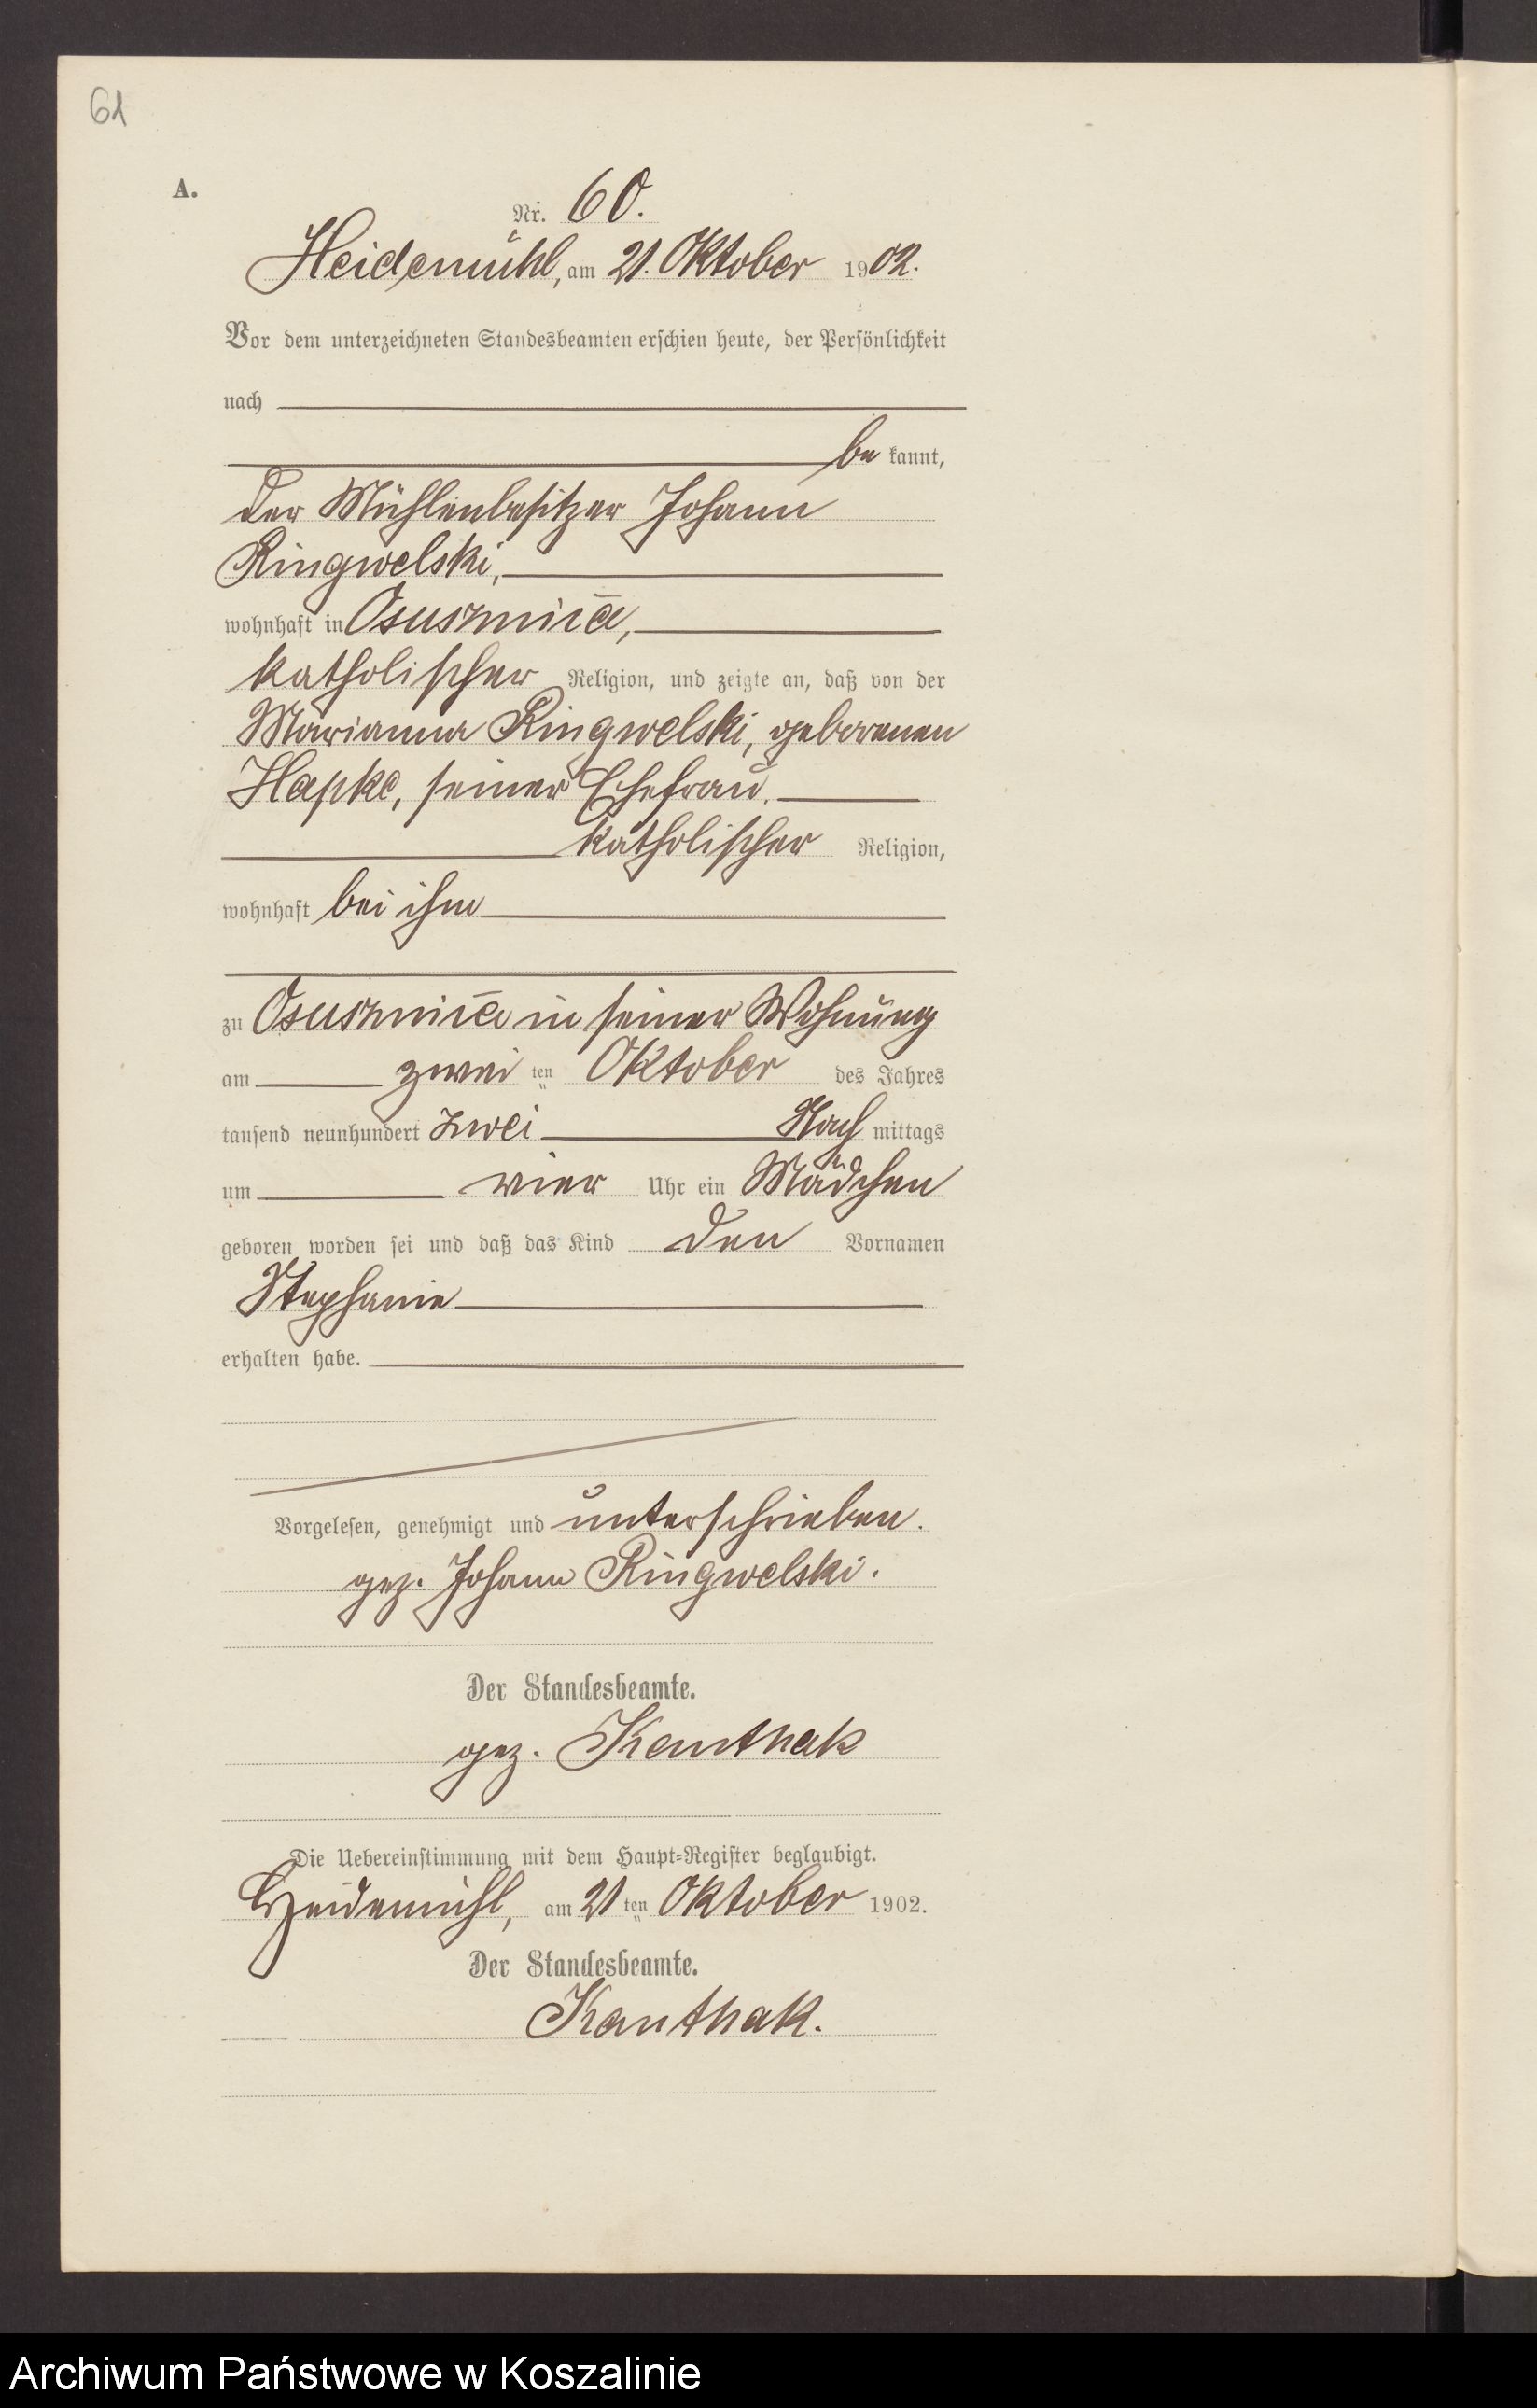 61
A.
Nr. 60.
Heidemühl, am 21. Oktober 1902.
Vor dem unterzeichneten Standesbeamten erschien heute, der Persönlichkeit
nach
be kannt,
der Mühlenbesitzer Johann
Ringwelski,
wohnhaft in Osusznica,
katholischer Religion, und zeigte an, daß von der
Marianna Ringwelski, geborenen
Hapke, seiner Ehefrau,
katholischer Religion,
wohnhaft bei ihm
zu Osusznica in seiner Wohnung
am zwei ten Oktober des Jahres
tausend neunhundert zwei Nach mittags
um vier Uhr ein Mädchen
geboren worden sei und daß das Kind den Vornamen
Stephanie
erhalten habe.
Vorgelesen, genehmigt und unterschrieben.
gez. Johann Ringwelski.
Der Standesbeamte.
gez. Kanthak
Die Uebereinstimmung mit dem Haupt-Register beglaubigt.
Heidemühl, am 21 ten Oktober 1902.
Der Standesbeamte.
Kanthak.
Archiwum Państwowe w Koszalinie